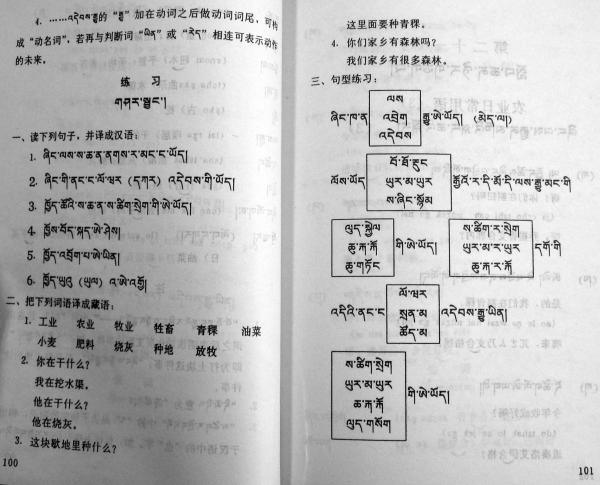 4. ……འདེབས་རྒྱུ的 “རྒྱུ” 加在动词之后做动词词尾，可构
成“动名词”，若再与判断词“ཡིན”或“རེད”相连可表示动作
的未来。
练 习
གཤར་སྦྱང་།
一、读下列句子，并译成汉语：
1. ཞིང་ལས་ས་ཆ་ན་ནགས་ར་མང་ང་ཡོད།
2. ཞིང་གི་ནང་ང་ལོ་ཕར (དཀར) འདེབས་གི་ཡོད།
3. ཁྱོད་ཚོའི་ས་ཆ་ན་ས་ཚིག་སྲེག་གི་ཨེ་ཡོད།
4. ཁྱོས་བོད་སྐད་ཨེ་ཤེས།
5. ཁྱོད་འབྲོག་པ་ཨེ་ཡིན།
6. ཁྱོད་ཡུའུ (ཡུལ) འ་ཨེ་འགྲོ།
二、把下列词语译成藏语：
1. 工业 农业 牧业 牲畜 青稞 油菜
小麦 肥料 烧灰 种地 放牧
2. 你在干什么？
我在挖水渠。
他在干什么？
他在烧灰。
3. 这块歇地里种什么？
100
这里面要种青稞。
4. 你们家乡有森林吗？
我们家乡有很多森林。
三、句型练习：
ལས
ཞིང་ཁ་ན འབྲོག རྒྱུ་ཨེ་ཡོད། (མེད་ལ།)
འདེབས
བོ་ཐོ་རྡུང
ལོས་ཡོད ཡུར་མ་ཡུར
ས་ཞིང་སྙོམ
ལུད་སྐྱེལ
ཆུ་ཀ་རྐོ གི་ཨེ་ཡོད།
ཆུ་གཏོང
ས་ཚིག་ར་སྲེག
ཡུར་མ་ར་ཡུར དགོ་གི
ཆུ་ཀ་ར་རྐོ
ལོ་ཕར
འདིའི་ནང་ང སྲན་མ འདེབས་རྒྱུ་ཡིན།
ཚོད་མ
ས་ཚིག་སྲེག
ཡུར་མ་ཡུར གི་ཨེ་ཡོད།
ཆ་ཀ་རྐོ
ལུད་གསོག
101